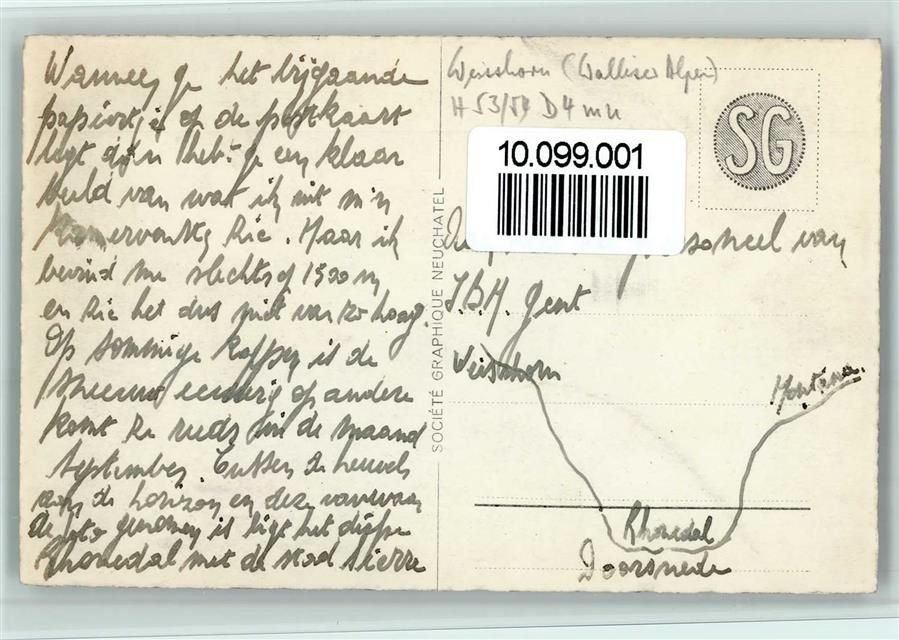 Wanneer ge het bijgaande
papiertje op de postkaart
legt dan hebt ge een klaar
beeld van wat ik uit m'n
Kamervenster zie. Maar ik
bevind me slechts op 1500 m
en zie het dus niet van zo hoog.
Op sommige koppen is de
sneeuw eeuwig op andere
komt ze reeds in de maand
September. Tussen de heuvels
aan de horizon en dez. vanwaar
de foto genomen is ligt het diepe
Rhonedal met de stad Sierre
SOCIÉTÉ GRAPHIQUE NEUCHATEL
Weisshorn (Walliser Alpen)
H 53/54 D 4 mu
SG
10.099.001
personeel van
I.B.M. Gent
Weisshorn
Montana.
Rhonedal
Doorsnede